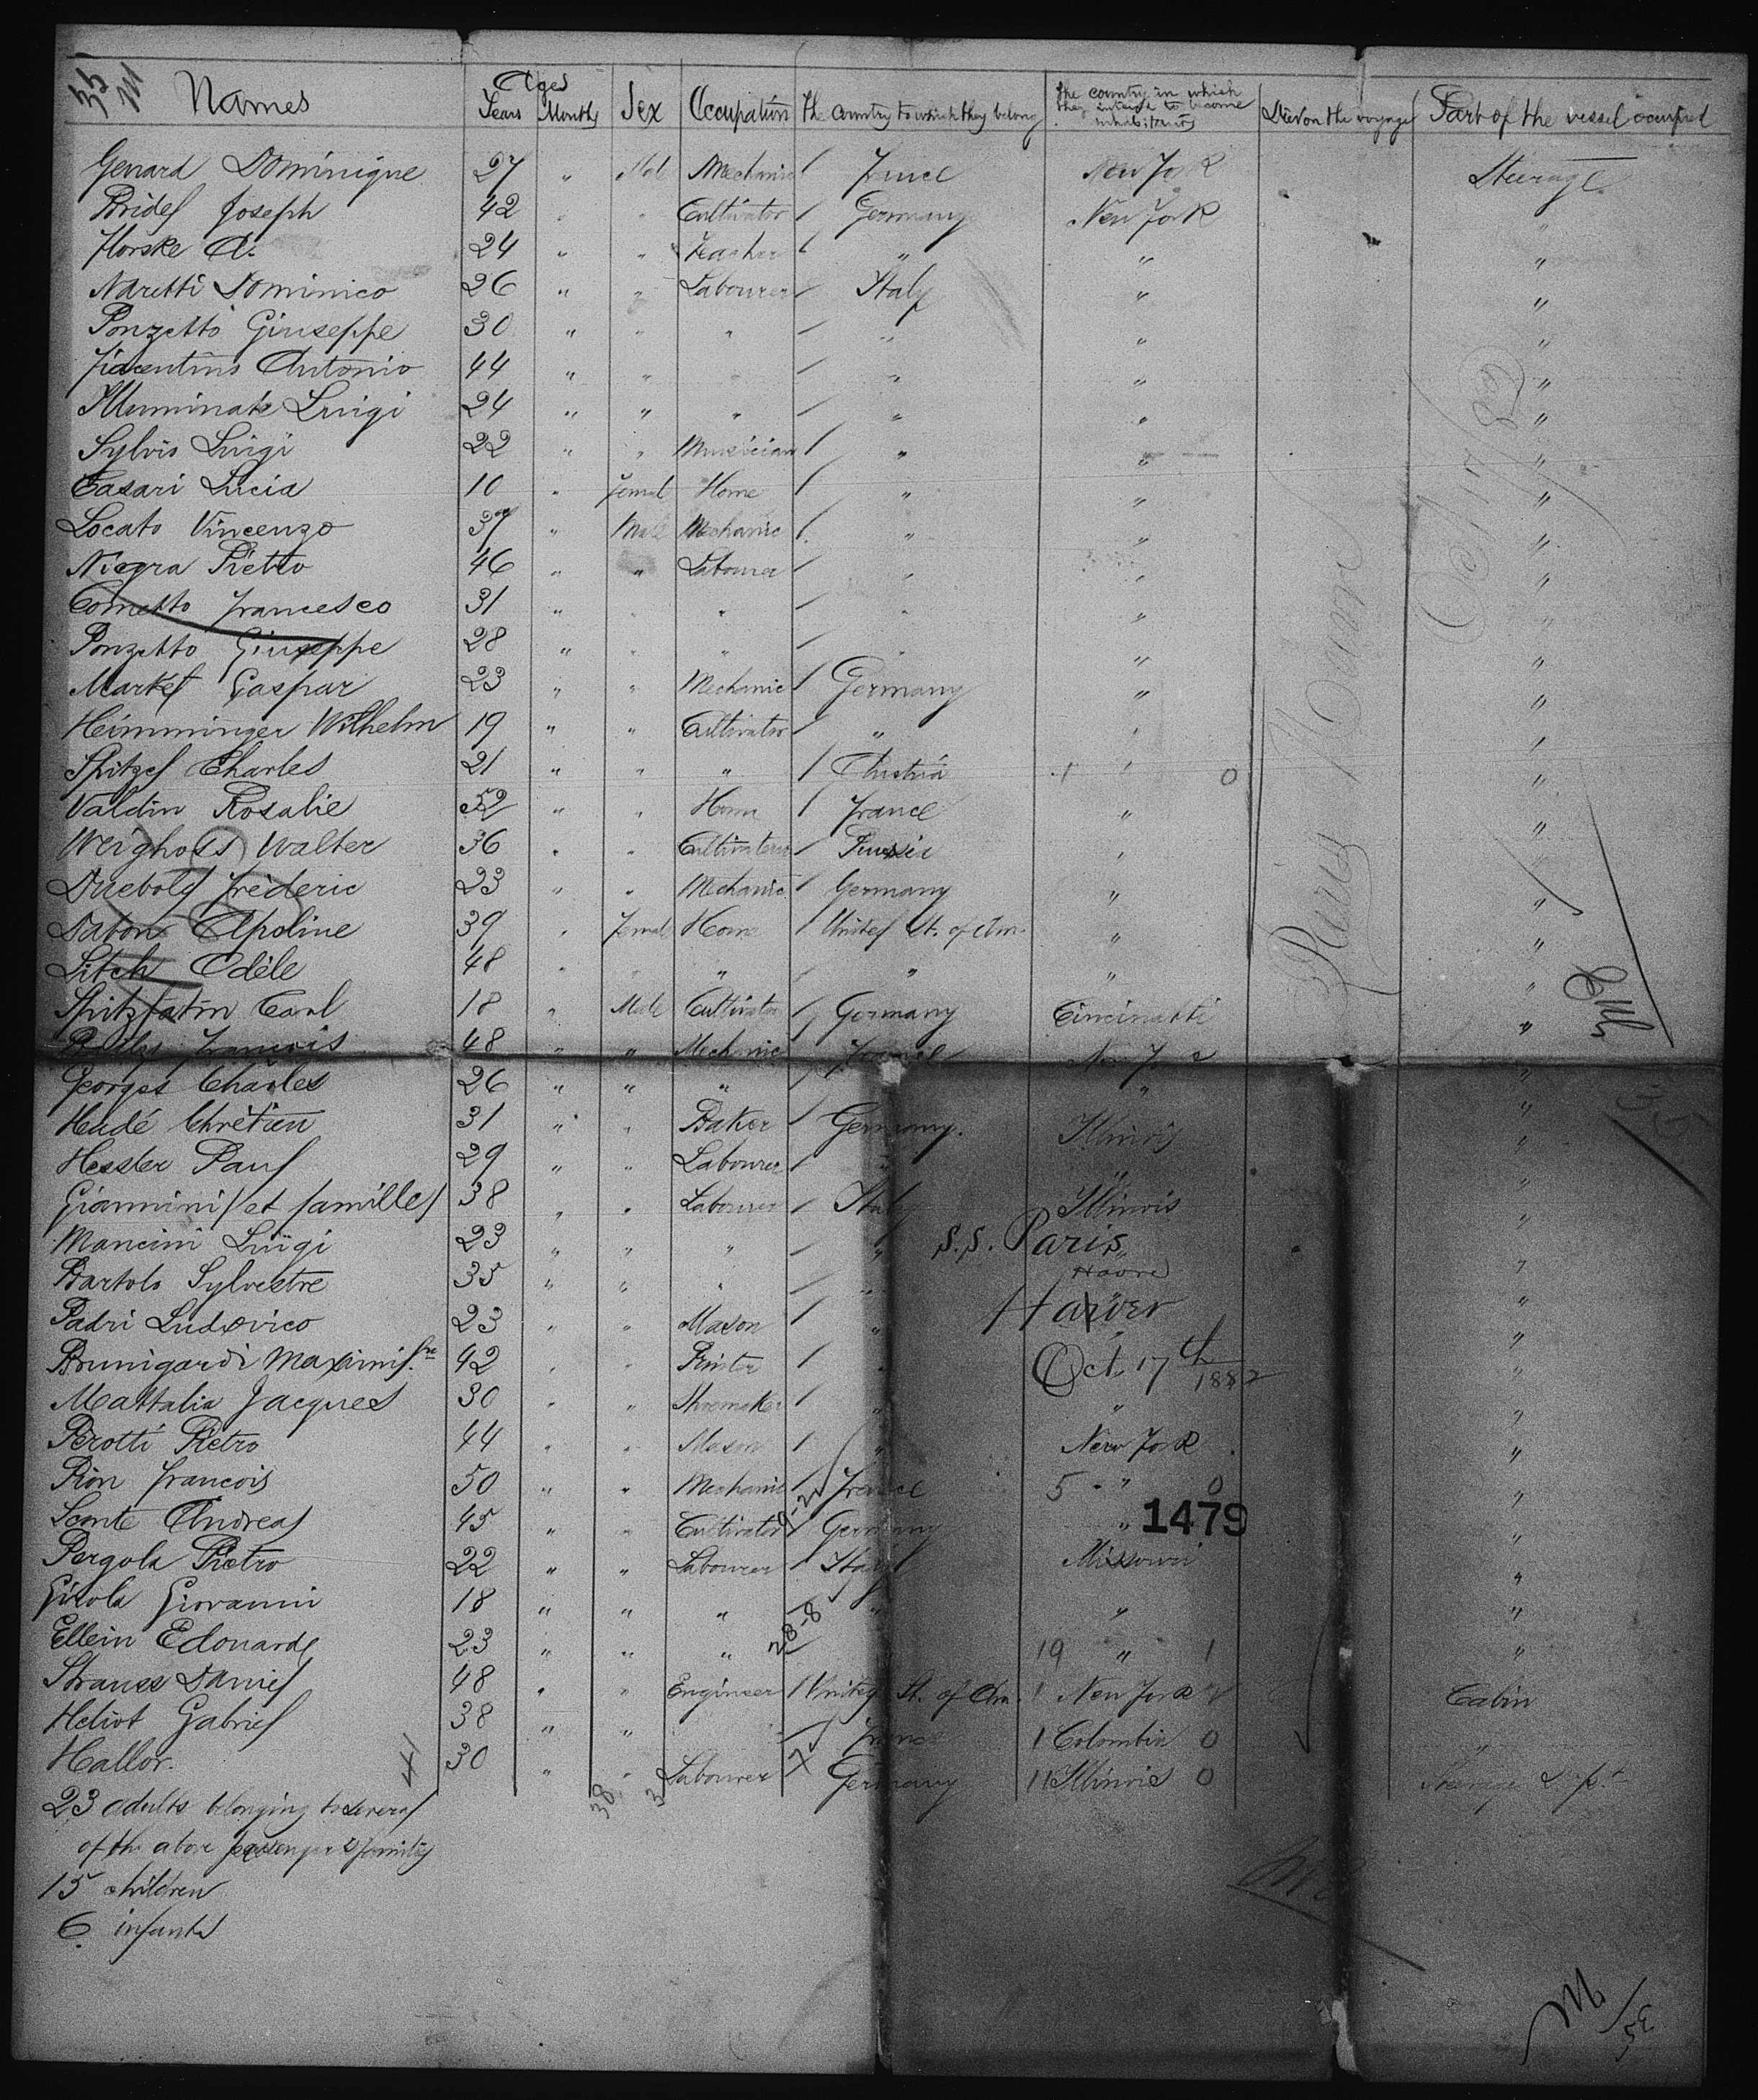 35
Names Ages Years Months Sex Occupation The country to which they belong The country in which they intend to become inhabitants Died on the voyage Part of the vessel occupied
Genard Dominique 27 " Male Mechanic / France New York Steerage
Bridel Joseph 42 " " Cultivator / Germany New York "
Horske A. 24 " " Teacher / " " "
Naretti Dominico 26 " " Labourer / Italy " "
Ponzetto Giuseppe 30 " " " / " " "
Antonio 44 " " " / " " "
Illuminato Luigi 24 " " " / " " "
Sylvis Luigi 22 " " Musician / " " "
Casari Lucia 10 " Femal Home / " " "
Locato Vincenzo 37 " Male Mechanic / " " "
Niegra Pietro 46 " " Labourer / " " "
Cometto Francesco 31 " " " / " " "
Ponzetto Giuseppe 28 " " " / " " "
Markel Gaspar 23 " " Mechanic / Germany " "
Heimminger Wilhelm 19 " " Cultivator / " " "
Spitzel Charles 21 " " " / Austria 1 " 0 "
Valdin Rosalie 52 " " Home / France " "
Weighoss Walter 36 " " Cultivator / Russia " "
Duebold Fréderic 23 " " Mechanic / Germany " "
Dabon Apoline 39 " Female Home / United St. of Am. " "
Litch Odèle 48 " " " / " " "
Spitzfatin Carl 18 " Male Cultivator / Germany Cincinatti "
François 48 " " Mechanic / France New York "
Georges Charles 26 " " " / " "
Hudé Chrétien 31 " " Baker / Germany. Illinois "
Hessler Paul 29 " " Labourer / " " "
Giannini (et famille) 38 " " Labourer / Italy Illinois "
Mancini Luigi 23 " " " / " " "
S.S. Paris
Bartolo Sylvestre 35 " " " / " "
Havre
Padri Ludovico 23 " " Mason / " " "
Harver
Brunigardi 42 " " / " "
Oct. 17th 1882
Mattalia Jacques 30 " " Shoemaker / " " "
Perotti Pietro 44 " " Mason / " New York "
Pion Francois 50 " " Mechanic / France 5 " 0 "
Conte Andreas 45 " " Cultivator / Germany " "
1479
Pergola Pietro 22 " " Labourer / Italy Missouri "
Girola Giovanni 18 " " " / " " "
28-8
Ellein Edouard 23 " " " / 19 " 1 "
Strauss Daniel 48 " " Engineer / United St. of Am. 1 New York Cabin
Heliot Gabriel 38 " " / France 1 Colombia 0 "
Hallor. 30 " " Labourer Germany 11 Illinois 0
41 38 3
23 adults belonging to several
of the above passengers families
15 children
6 infants
Paris Havre
Oct 17/82
35
M
35